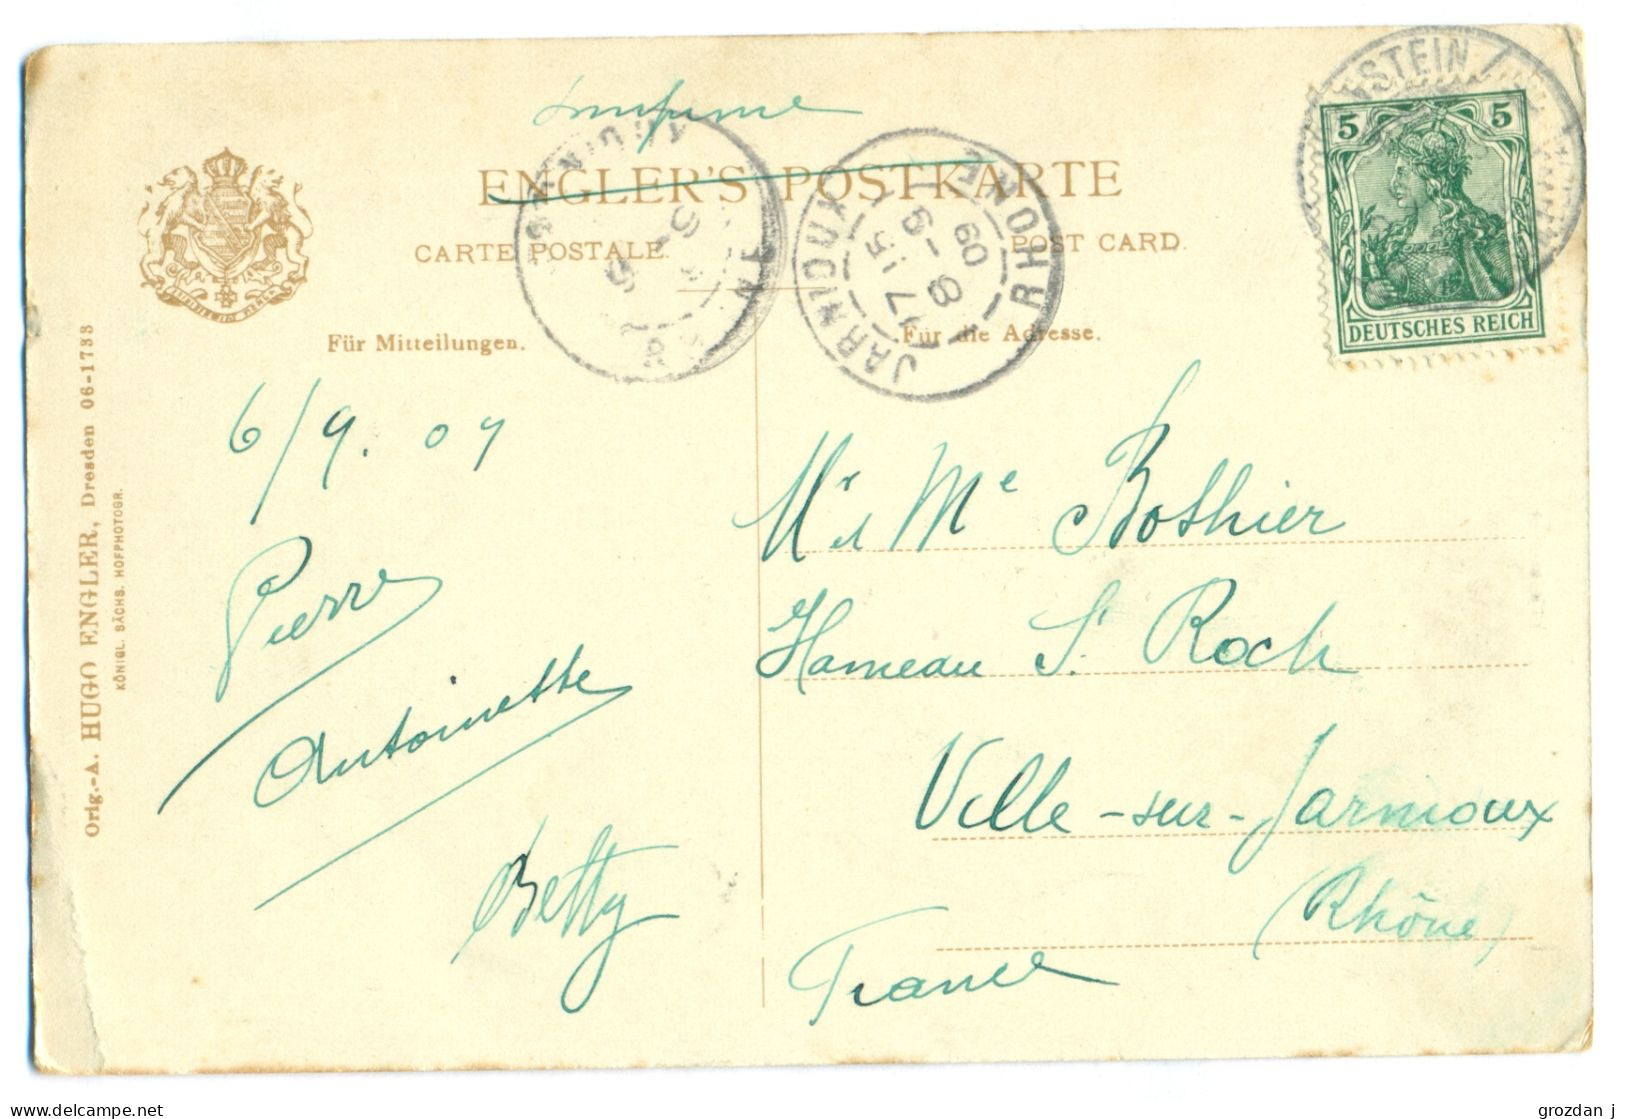 Imprimé
ENGLER'S POSTKARTE
CARTE POSTALE.
POST CARD.
Für Mitteilungen.
Für die Adresse.
JARNIOUX
RHONE
17 15
8 -9
09
STEIN
5 5
DEUTSCHES REICH
6/9. 09
Pierre
Antoinette
Betty
Mr et Me Bothier
Hameau St Roch
Ville-sur-Jarnioux
(Rhône)
France
Orig.-A. HUGO ENGLER, Dresden 06-1733
KÖNIGL. SÄCHS. HOFPHOTOGR.
grozdan j